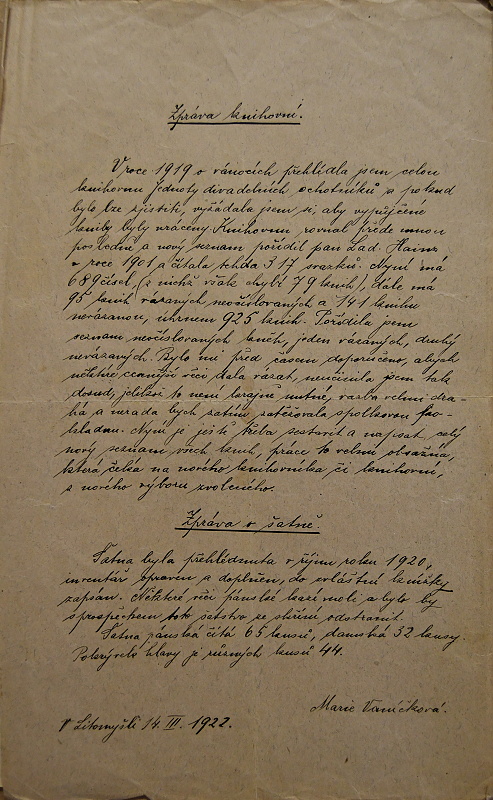 Zpráva knihovní.
V roce 1919 o vánocích přehlídla jsem celou
knihovnu Jednoty divadelních ochotníků a pokud
bylo lze zjistiti, vyžádala jsem si, aby vypůjčené
knihy byly vráceny. Knihovnu rovnal přede mnou
posledně a nový seznam pořídil pan Lad. Hainz
v roce 1901 a čítala tehda 317 svazků. Nyní má
689 čísel, (z nichž však chybí 79 knih), dále má
95 knih vázaných neočíslovaných a 141 knihu
nevázanou, úhrnem 925 knih. Pořídila jsem
seznam neočíslovaných knih, jeden vázaných, druhý
nevázaných. Bylo mi před časem doporučeno, abych
některé cennější věci dala vázat, neučinila jsem tak
dosud, jelikož to není tak nutné, vazba velmi dra-
há a nerada bych zatím zatěžovala spolkovou po-
kladnu. Nyní je ještě třeba sestaviti a napsat celý
nový seznam všech knih, práce to velmi obsažná,
která čeká na nového knihovníka či knihovní,
z nového výboru zvoleného.
Zpráva o šatně.
Šatna byla přehlédnuta v říjnu roku 1920,
inventář opraven a doplněn, do zvláštní knížky
zapsán. Některé věci pánské kazí moli a bylo by
s prospěchem šatstvo ze skříní odstranit.
Šatna pánská čítá 65 kusů, dámská 32 kusy.
Pokrývek hlavy je různých kusů 44.
Marie Vaníčková.
V Litomyšli 14. III. 1922.